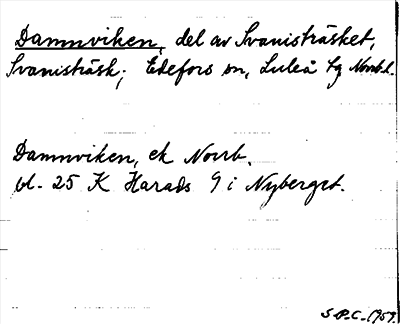 Damnviken, del av Svanisträsket,
Svanisträsk; Edefors sn, Luleå tg Norrb.l.
Damnviken, ek Norrb.
bl. 25 K Harads 9 i Nyberget.
S.P.C. 1959.